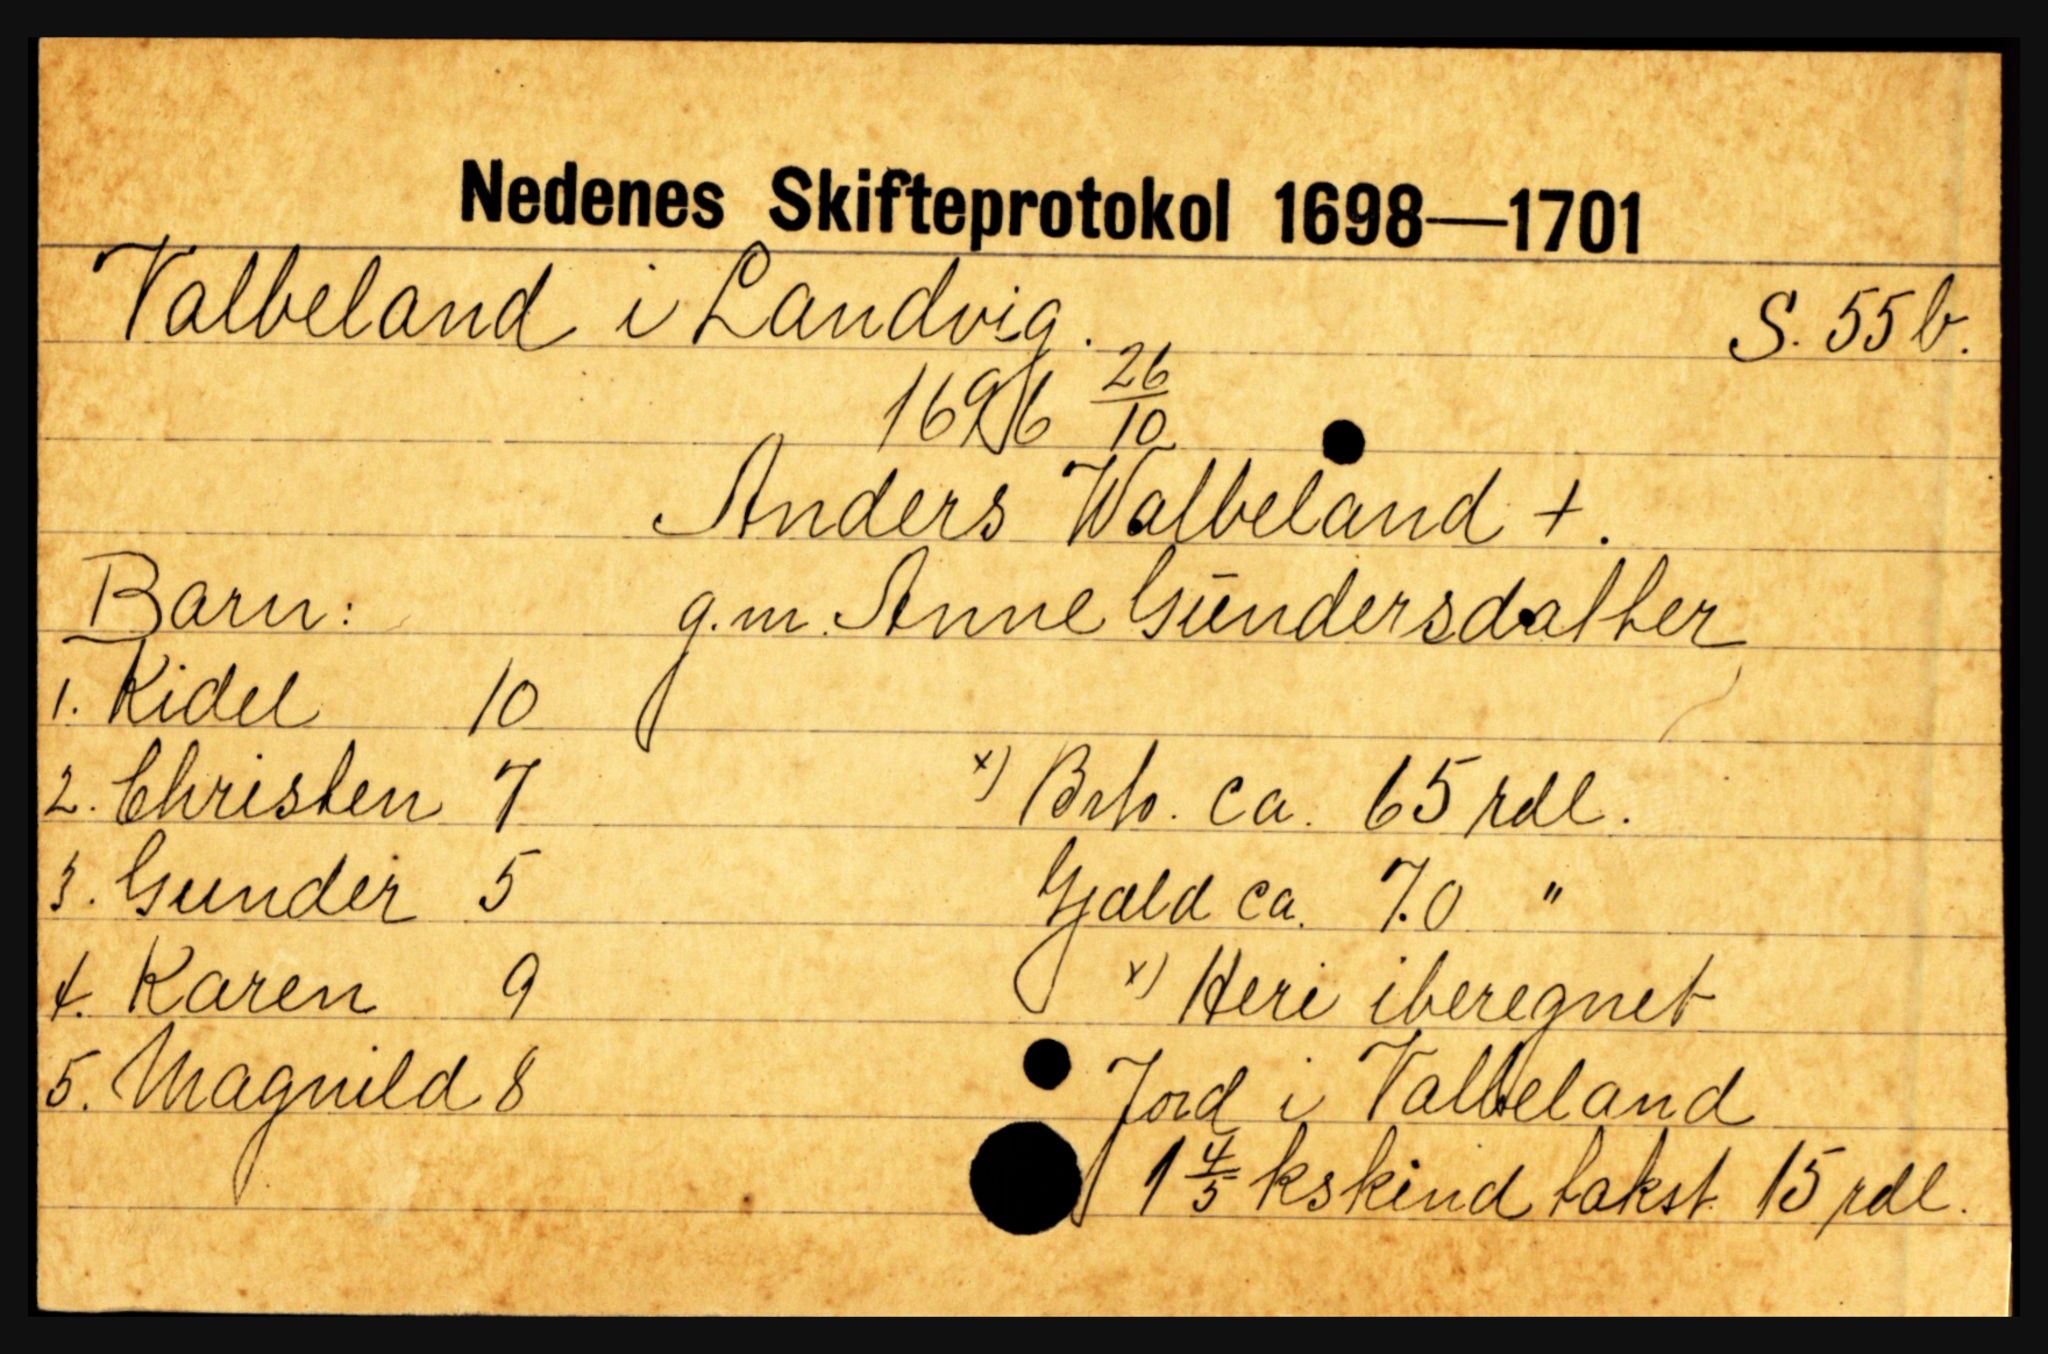 Nedenes Skifteprotokol 1698—1701
Valbeland i Landvig. S. 55 b.
1696 26/10
Anders Walbeland +.
Barn: g.m. Anne Gūndersdatter
1. Kidel 10
2. Christen 7 x) Brto. ca. 65 rdl.
3. Gunder 5 Gjæld ca. 70 "
4. Karen 9 x) Heri iberegnet
5. Magnild 8 Jord i Valbeland
1 4/5 kskind takst. 15 rdl.